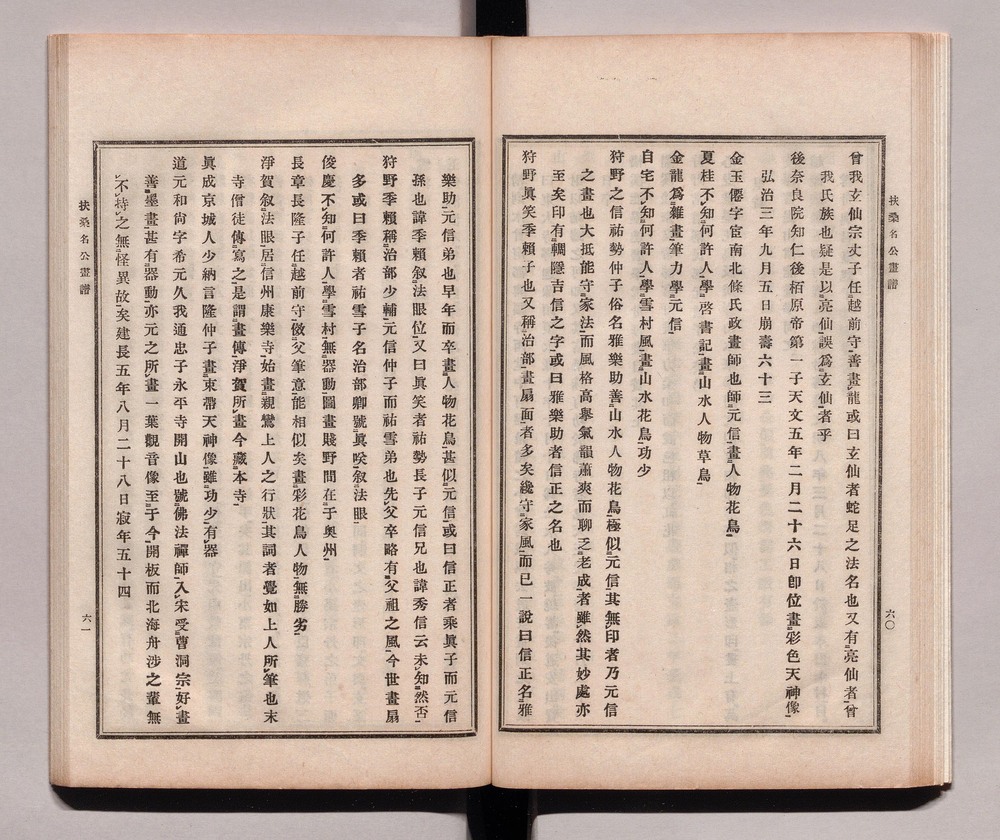 扶桑名公畫譜
六〇
曾我玄仙宗丈子任越前守善畫龍或曰玄仙者蛇足之法名也又有亮仙者曾
我氏族也疑是以亮仙誤爲玄仙者乎
後奈良院知仁後栢原帝第一子天文五年二月二十六日卽位畫彩色天神像
弘治三年九月五日崩壽六十三
金玉僊字宦南北條氏政畫師也師元信畫人物花鳥
夏桂不知何許人學啓書記畫山水人物草鳥
金龍爲雜畫筆力學元信
自宅不知何許人學雪村風畫山水花鳥功少
狩野之信祐勢仲子俗名雅樂助善山水人物花鳥極似元信其無印者乃元信
之畫也大抵能守家法而風格高擧氣韻蕭爽而聊乏老成者雖然其妙處亦
至矣印有輞隱吉信之字或曰雅樂助者信正之名也
狩野眞笑季賴子也又稱治部畫扇面者多矣纔守家風而已一說曰信正名雅
樂助元信弟也早年而卒畫人物花鳥甚似元信或曰信正者乘眞子而元信
孫也諱季賴叙法眼位又曰眞笑者祐勢長子元信兄也諱秀信云未知然否
狩野季賴稱治部少輔元信仲子而祐雪弟也先父卒略有父祖之風今世畫扇
多或曰季賴者祐雪子名治部卿號眞咲叙法眼
俊慶不知何許人學雪村無器動圖畫賤野間在于奧州
長章長隆子任越前守倣父筆意能相似矣畫彩花鳥人物無勝劣
淨賀叙法眼居信州康樂寺始畫親鸞上人之行狀其詞者覺如上人所筆也末
寺僧徒傳寫之是謂畫傳淨賀所畫今藏本寺
眞成京城人少納言隆仲子畫束帶天神像雖功少有器
道元和尙字希元久我通忠子永平寺開山也號佛法禪師入宋受曹洞宗好畫
善墨畫甚有器動亦元之所畫一葉觀音像至于今開板而北海舟涉之輩無
不持之無怪異故矣建長五年八月二十八日寂年五十四
扶桑名公畫譜
六一